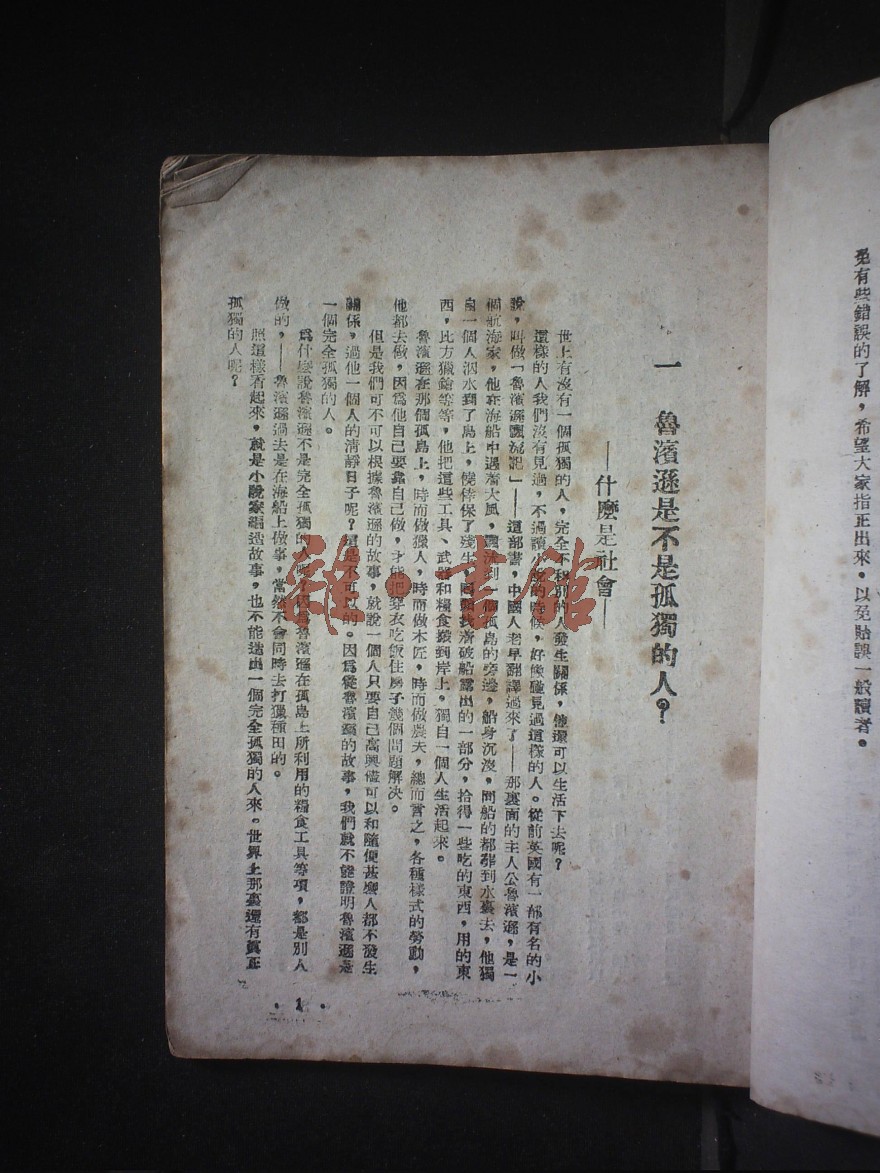 免有些錯誤的了解，希望大家指正出來，以免貽誤一般讀者。
一　魯濱遜是不是孤獨的人？
——什麼是社會——
世上有沒有一個孤獨的人，完全不和別的人發生關係，他還可以生活下去呢？
這樣的人我們沒有見過，不過讀小說的時候，好像碰見過這樣的人。從前英國有一部有名的小
說，叫做「魯濱遜飄流記」——這部書，中國人老早翻譯過來了——那裏面的主人公魯濱遜，是一
個航海家，他在海船中遇着大風，飄流到一個孤島的旁邊，船身沉沒，同船的都葬到水裏去，他獨
自一個人泅水到了島上，僥倖保了殘生，回頭找着破船露出的一部分，拾得一些吃的東西，用的東
西，比方獵鎗等等，他把這些工具、武器和糧食搬到岸上。獨自一個人生活起來。
魯濱遜在那個孤島上，時而做獵人，時而做木匠，時而做農夫，總而言之，各種樣式的勞動，
他都去做，因爲他自己要靠自己做，才能把穿衣吃飯住房子幾個問題解決。
但是我們可不可以根據魯濱遜的故事，就說一個人只要自己高興儘可以和隨便甚麼人都不發生
關係，過他一個人的清靜日子呢？這是不可以的。因爲從魯濱遜的故事，我們就不能證明魯濱遜是
一個完全孤獨的人。
爲什麼說魯濱遜不是完全孤獨的人呢？因爲魯濱遜在孤島上所利用的糧食工具等項，都是別人
做的，——魯濱遜過去是在海船上做事，當然不會同時去打獵種田的。
照這樣看起來，就是小說家編造故事，也不能造出一個完全孤獨的人來。世界上那裏還有眞正
孤獨的人呢？
• 1 •
雜·書館